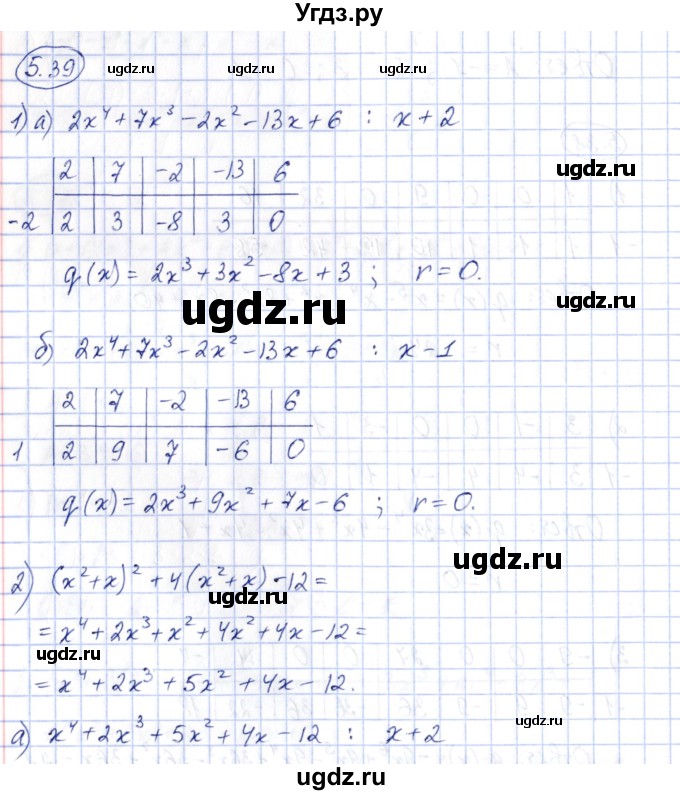 Угдз.ру
5.39
ugdz.ru ugdz.ru ugdz.ru
1) а) 2x⁴ + 7x³ − 2x² − 13x + 6 : x + 2
ugdz.ru
2 | 7 | −2 | −13 | 6
−2 2 | 3 | −8 | 3 | 0
q(x) = 2x³ + 3x² − 8x + 3 ; r = 0.
ugdz.ru ugdz.ru
б) 2x⁴ + 7x³ − 2x² − 13x + 6 : x − 1
2 | 7 | −2 | −13 | 6
ugdz.ru
1 2 | 9 | 7 | −6 | 0
q(x) = 2x³ + 9x² + 7x − 6 ; r = 0.
ugdz.ru
2) (x² + x)² + 4(x² + x) − 12 =
ugdz.ru
= x⁴ + 2x³ + x² + 4x² + 4x − 12 =
ugdz.ru
= x⁴ + 2x³ + 5x² + 4x − 12.
ugdz.ru
а) x⁴ + 2x³ + 5x² + 4x − 12 : x + 2
ugdz.ru
ugdz.ru